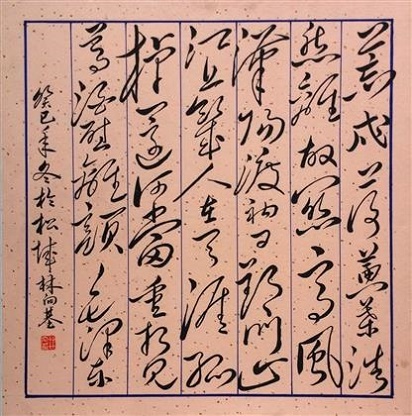 荒戍落黄葉浩
然離故關高風
漢陽渡初日郢門山
江上幾人在天涯孤
棹還何當重相見
尊酒慰離顏 毛澤东
癸巳年冬於松城林向基